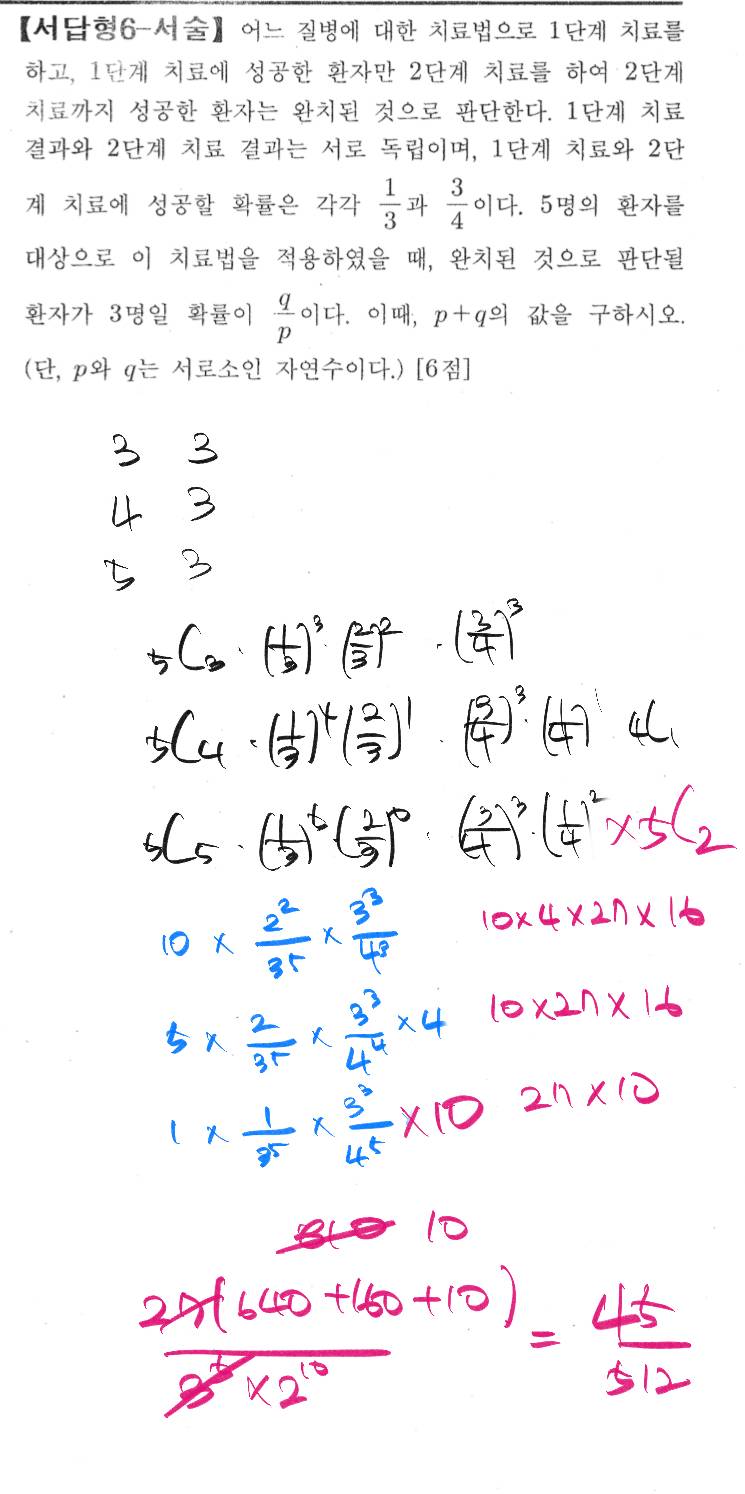 【서답형6-서술】 어느 질병에 대한 치료법으로 1단계 치료를
하고, 1단계 치료에 성공한 환자만 2단계 치료를 하여 2단계
치료까지 성공한 환자는 완치된 것으로 판단한다. 1단계 치료
결과와 2단계 치료 결과는 서로 독립이며, 1단계 치료와 2단
계 치료에 성공할 확률은 각각 1/3과 3/4이다. 5명의 환자를
대상으로 이 치료법을 적용하였을 때, 완치된 것으로 판단될
환자가 3명일 확률이 q/p이다. 이때, p+q의 값을 구하시오.
(단, p와 q는 서로소인 자연수이다.) [6점]
3 3
4 3
5 3
₅C₃ · (1/3)³ (2/3)² · (3/4)³
₅C₄ · (1/3)⁴ (2/3)¹ · (3/4)³ · (1/4)¹ ₄C₁
₅C₅ · (1/3)⁵ (2/3)⁰ · (3/4)³ · (1/4)² × ₅C₂
10 × 2²/3⁵ × 3³/4³ 10×4×27×16
5 × 2/3⁵ × 3³/4⁴ × 4 10×27×16
1 × 1/3⁵ × 3³/4⁵ × 10 27×10
810 10
27(640+160+10) / 3⁵×2¹⁰ = 45/512